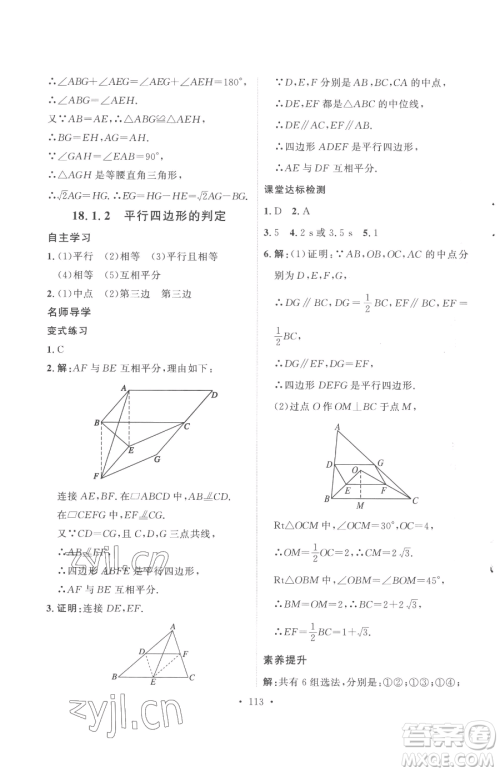 ∴∠ABG+∠AEG=∠AEH+∠AEG=180°,
∴∠ABG=∠AEH.
又∵∠ABG=∠AEH.
又∵△ABG≌△AEH,
∴BG=EH,AG=AH.
∵∠GAH=∠EAB=90°,
∴△AGH是等腰直角三角形,
∴√2AG=HG,∴EG-BG=√2AG.
18.1.2 平行四边形的判定
自主学习
1.(1)平行 (2)相等 (3)平行 相等
(4)相等 (5)互相平分
2.(1)中点 (2)第三边 第三边
名师导学
变式练习
1.C
2.解:AF与BE互相平分,理由如下:
A
D
B
C
E
F
G
连接AE,BF.在□ABCD中,AB∥CD,
在□CEFG中,EF∥CD,
又∵CD=CG,且C,D,G三点共线,
∴四边形ABFE是平行四边形,
∴AF与BE互相平分.
3.证明:连接DE,EF.
A
D
F
B
E
C
∵D,E,F分别是AB,BC,CA的中点,
∴DE,EF是△ABC的中位线,
∴DE∥AF,EF∥AD,
∴四边形ADEF是平行四边形,
∴AE与DF互相平分.
课堂达标检测
1.D 2.A
3.5 4.2 s或3.5 s 5.1
6.解:(1)证明:∵AB,OB,OC,AC的中点分
别为D,E,F,G,
∴DG∥BC,DG=1/2BC,EF∥BC,EF=
1/2BC,
∴DG=EF,DG∥EF,
∴四边形DEFG是平行四边形.
(2)过点O作OM⊥BC于点M,
A
D
G
O
E
F
B
M
C
Rt△OCM中,∠OCM=30°,OC=4,
∴OM=1/2OC=2,∴CM=2√3.
Rt△OBM中,∠BOM=∠OBM=45°,
∴BM=OM=2,∴BC=2+2√3,
∴EF=1/2BC=1+√3.
素养提升
解:共有6组选法,分别是:①②;①③;
113
zyjl.cn
zyjl.cn
答案圈